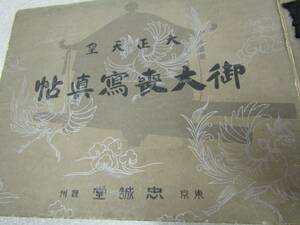 大正天皇
御大喪寫真帖
東京 忠誠堂 發刊